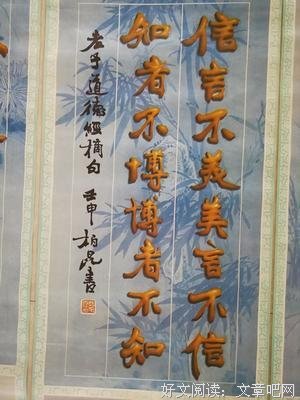 信言不美美言不信
知者不博博者不知
老子道德經摘句 壬申 柏昆書
好文阅读：文章吧网